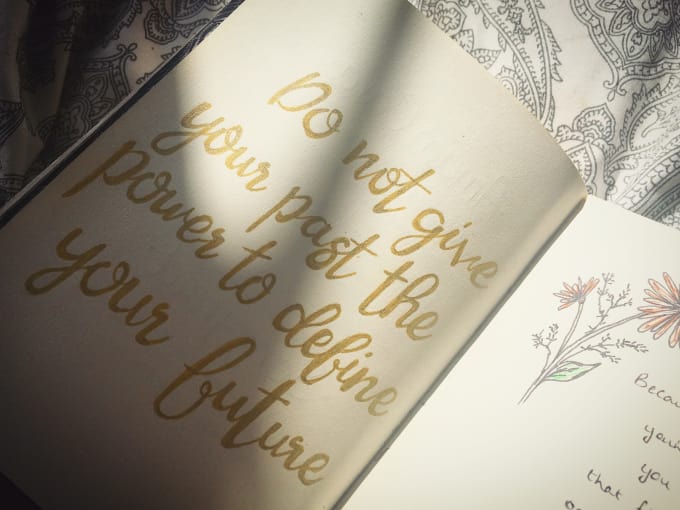 Do not give
your past the
power to define
your future
you
that